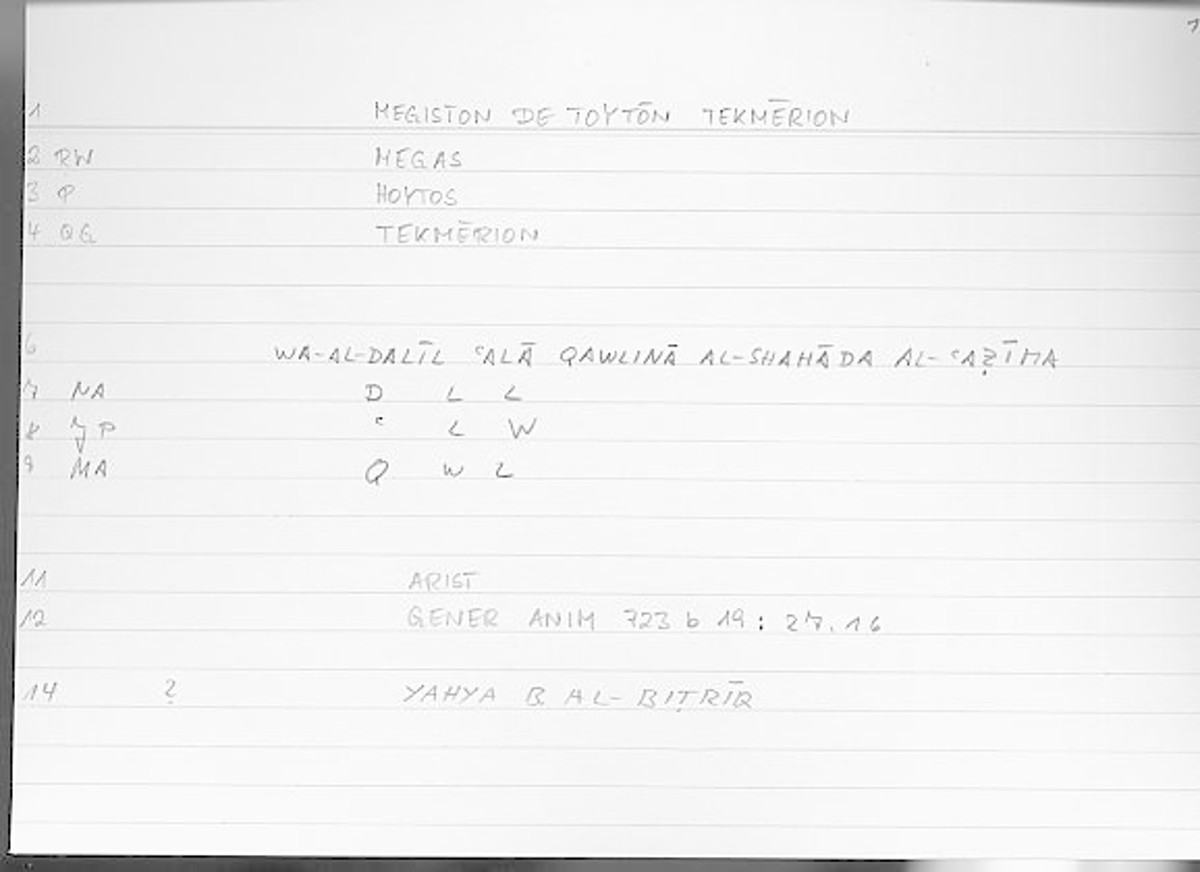 1
1 MEGISTON DE TOYTŌN TEKMĒRION
2 RW MEGAS
3 P HOYTOS
4 QG TEKMĒRION
6 WA-AL-DALĪL ʿALĀ QAWLINĀ AL-SHAHĀDA AL-ʿAẒĪMA
7 NA D L L
8 P ʿ L W
9 MA Q W L
11 ARIST
12 GENER ANIM 723 b 19 : 27.16
14 ? YAHYA B AL-BIṬRĪQ